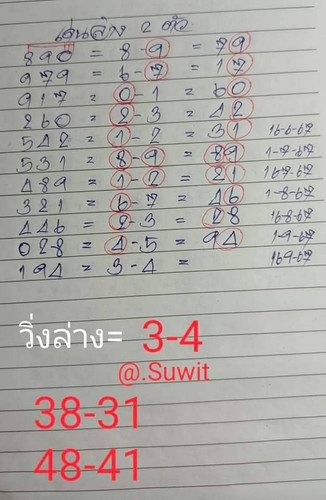 เด่นล่าง 2 ตัว
890 = 8-9 = 79
979 = 6-7 = 17
917 = 0-1 = 60
260 = 2-3 = 42
542 = 1-2 = 31 16-6-67
531 = 8-9 = 89 1-7-67
489 = 1-2 = 21 16-7-67
321 = 6-7 = 46 1-8-67
446 = 2-3 = 28 16-8-67
028 = 4-5 = 94 1-9-67
194 = 3-4 = 16-9-67
วิ่งล่าง= 3-4
@.Suwit
38-31
48-41